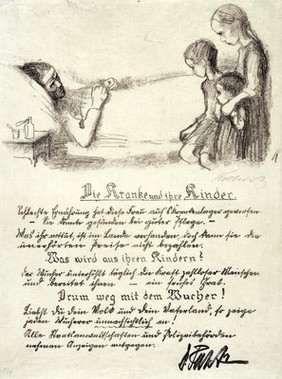 Die Kranke und ihre Kinder.
Schlechte Ernährung hat diese Frau auf's Krankenlager geworfen
– Sie könnte gesunden bei guter Pflege. –
Was ihr nottut, ist im Lande vorhanden, doch kann sie die
unerhörten Preise nicht bezahlen.
Was wird aus ihren Kindern?
Der Wucher unterwühlt täglich die Kraft zahlloser Menschen
und bereitet ihnen – ein frühes Grab.
Drum weg mit dem Wucher!
Liebst Du Dein Volk und Dein Vaterland, so zeige
jeden Wucherer unnachsichtlich an!
Alle Staatsanwaltschaften und Polizeibehörden
nehmen Anzeigen entgegen.